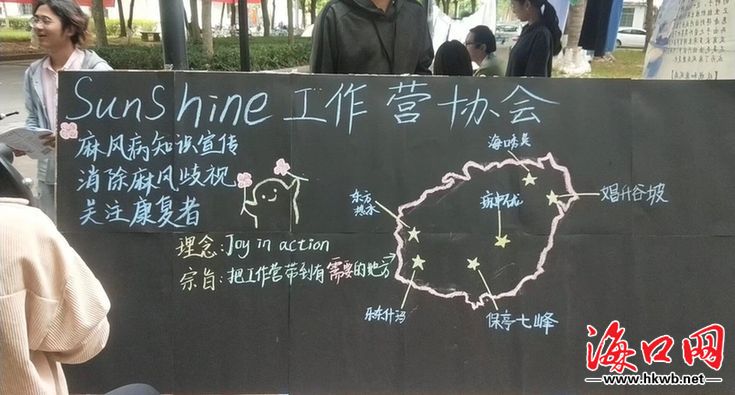 Sunshine 工作营协会
麻风病知识宣传
消除麻风歧视
关注康复者
理念：Joy in action
宗旨：把工作营带到有需要的地方
东方
热水
乐东什玛
保亭七峰
海口网
www.hkwb.net